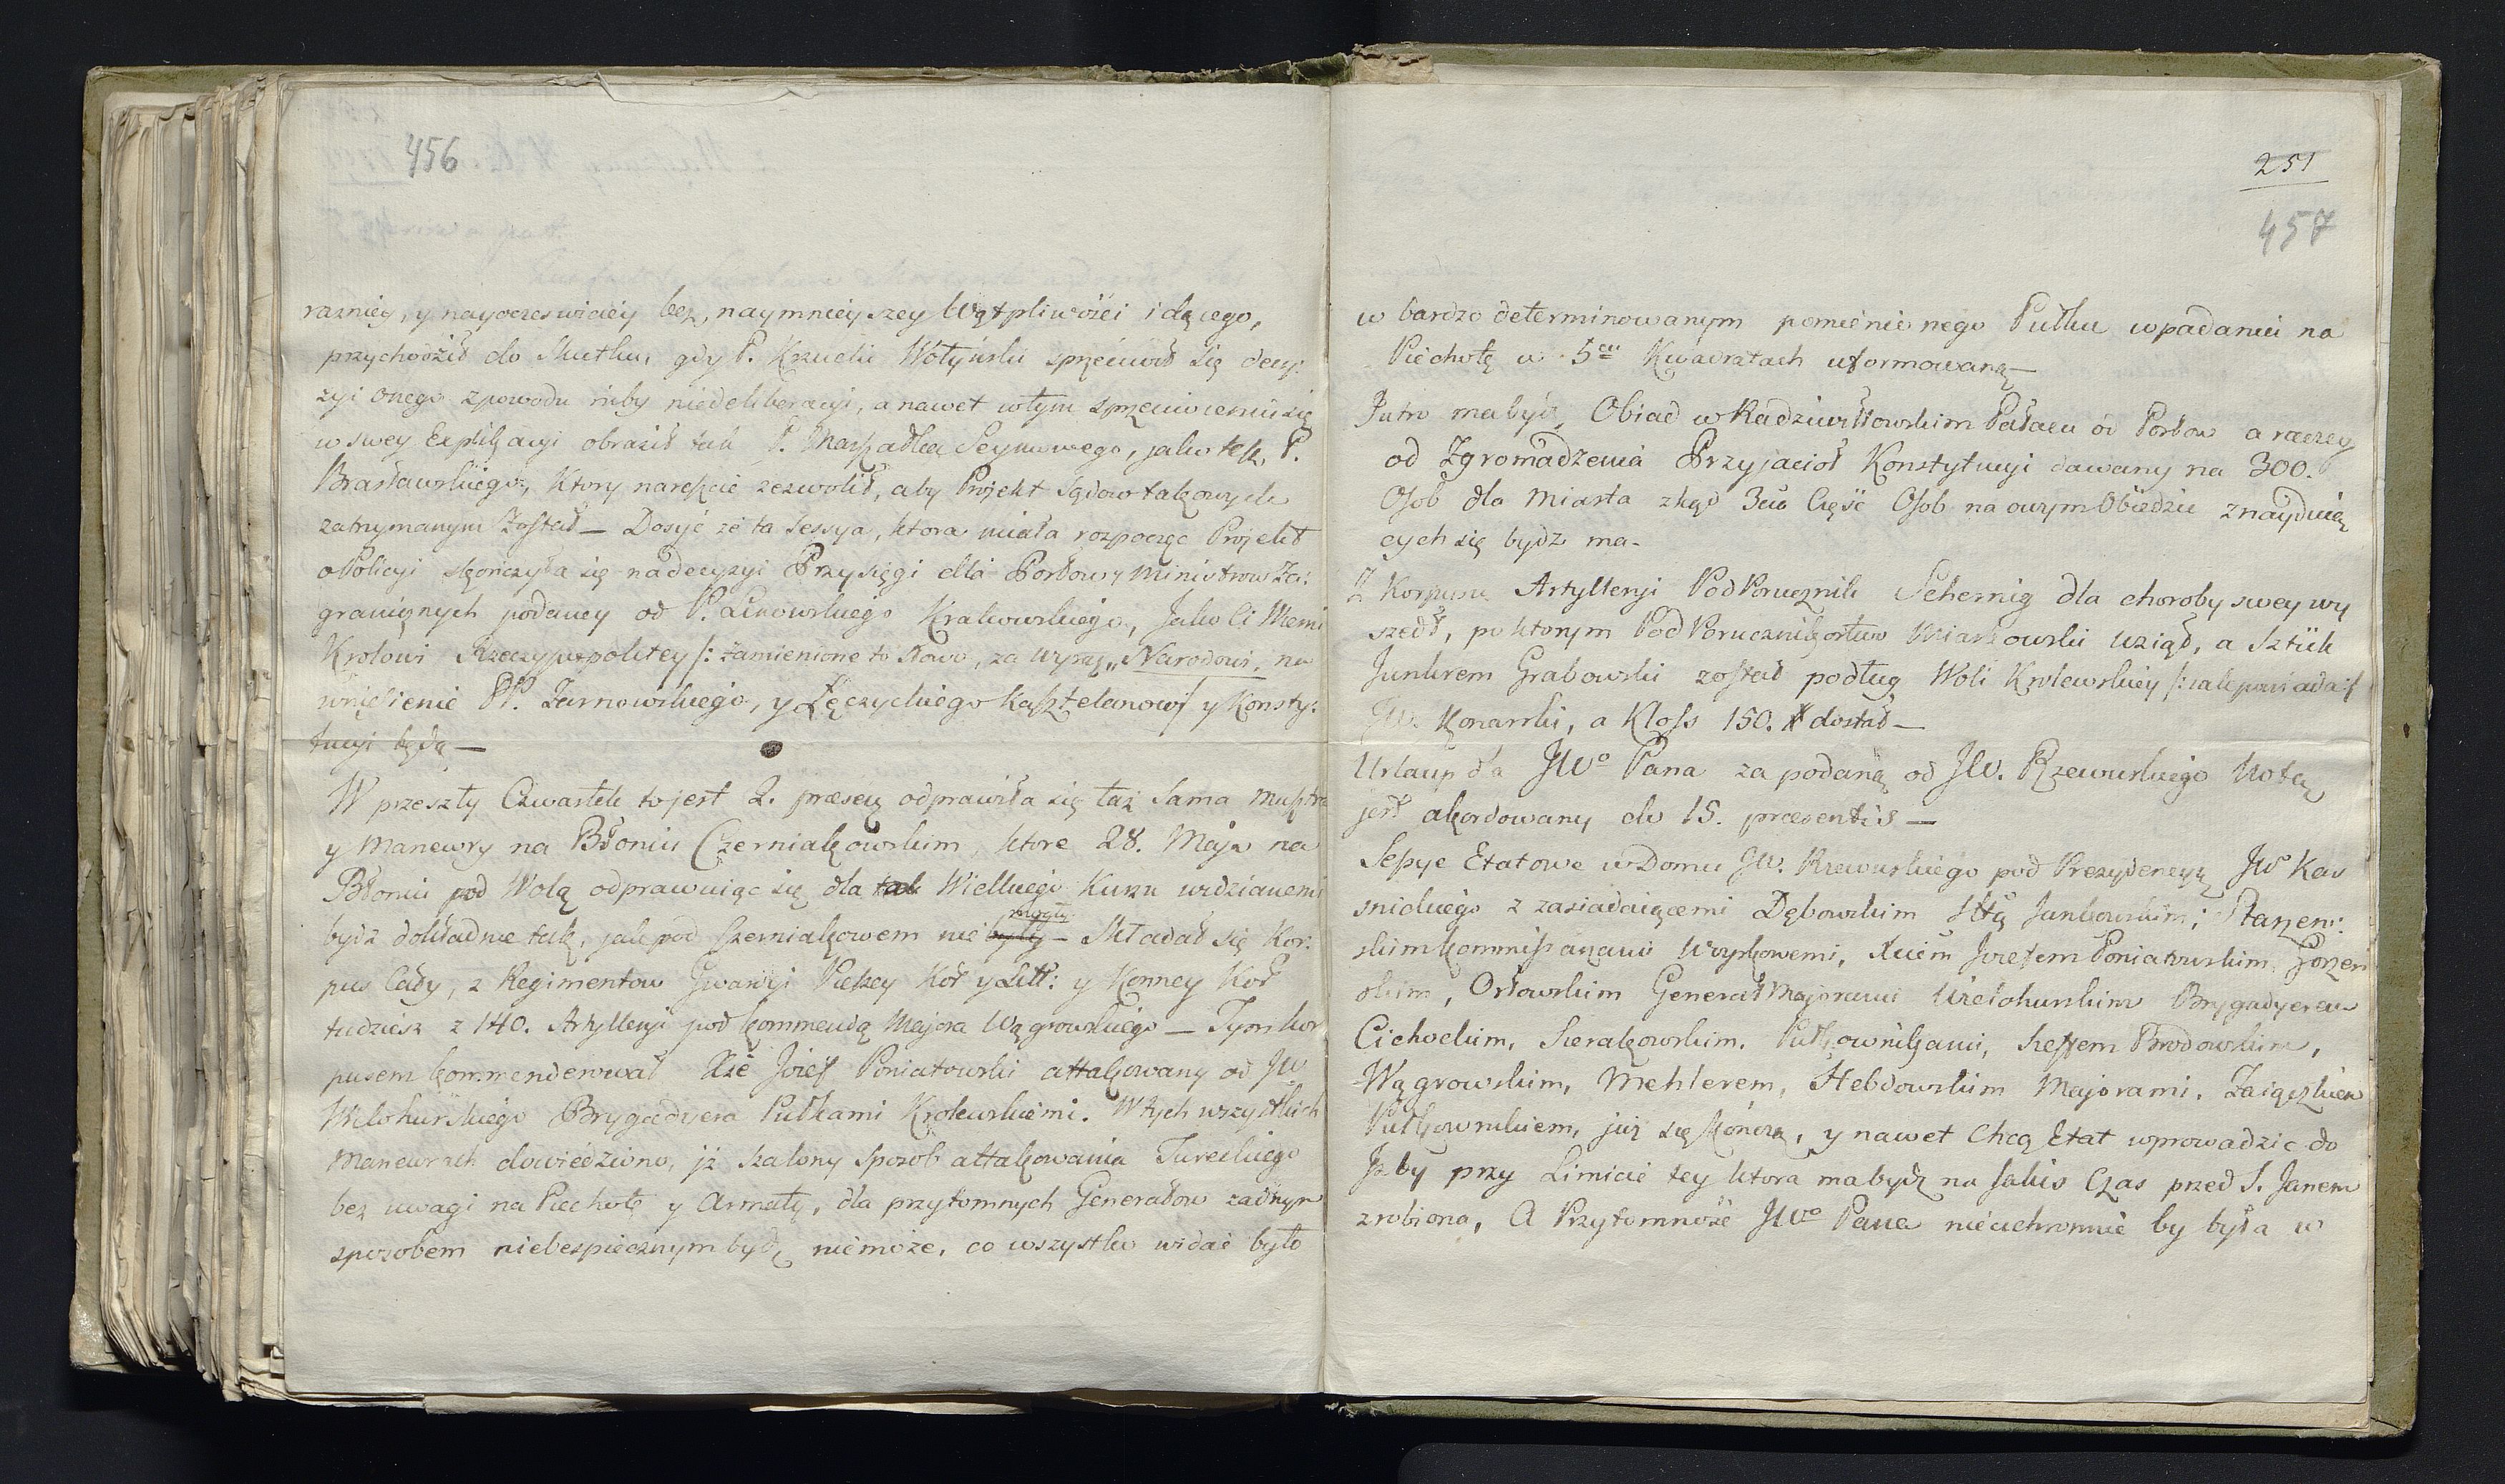 456
razniey, y nayoczeswiciey bez, naymnieyszey Wątpliwości idącego,
przychodził do Skutku, gdy P. Krzucki Wołyński sprzeciwił się decy:
zyi onego z powodu niby niedeliberacyi, a nawet w tym sprzeciwieniu się
w swey Explikacyi obraził tak P. Marszałka Seymowego, jako też, P.
Brasławskiego, ktory nareszcie zezwolił, aby Projekt Sądow takowych
zatrzymanym został — Dosyć że ta Sessya, ktora miała rozpocząc Projekt
o Policyi skończyła się na decyzyi Przysięgi dla Posłow y Ministrow Za:
granicznych podaney od P. Linowskiego Krakowskiego, Jako Ci Wierni
Krolowi Rzeczypospolitey /: zamienione to Słowo, za wyraz „Narodowi, na
wniesienie PP. Tarnowskiego, y Łęczyckiego Kasztelanow :/ y Konsty:
tucyi będą —
W przeszły Czwartek to jest 2. præsen odprawiła się taż Sama Musztra
y Manewry na Błoniu Czerniakowskim, ktore 28. Maja na
Błoniu pod Wolą odprawuiąc się dla tak Wielkiego Kurzu widzianemi
mogły
bydz dokładnie tak, jak pod Czerniakowem nie były — Składał się Kor:
pus Cały, z Regimentow Gwardyi Pieszey Kor y Litt: y Konney Kor
tudziesz z 140. Artylleryi pod kommendą Majora Wągrowskiego — Tym kor
pusem kommenderował Xże Jozef Poniatowski attakowany od JW.
Wielohurskiego Brygadyera Pułkami Krolewskiemi. W tych wszystkich
Manewrach dowiedziono, iż szalony sposob attakowania Tureckiego
bez uwagi na Piechotę y Armaty, dla przytomnych Generałow zadnym
sposobem niebespiecznym bydz niemoże, co wszystko widać było
251
457
w bardzo determinowanym pomienionego Pułku wpadaniu na
Piechotę w 5ciu Kwadratach uformowaną —
Jutro ma bydz Obiad w Radziwiłłowskim Pałacu od Posłow a raczey
od Zgromadzenia Przyjacioł Konstytucyi dawany na 300.
Osob dla Miasta zkąd 3cia Część Osob na owym Obiedzie znayduią
cych się bydz ma —
Z Korpusu Artylleryi PodPorucznik Schernig dla choroby swey wy
szedł, po ktorym PodPorucznikostwo Miaskowski wziął, a Sztük
Junkrem Grabowski został podług Woli Krolewskiey /: iak powiadał
JW. Konarski, a Kloss 150. # dostał —
Urlaup dla JWo Pana za podaną od JW. Rzewuskiego Notą
jest akordowany do 15. præsentis —
Sessye Etatowe w Domu JW. Rzewuskiego pod Prezydencyą JW Kas
snickiego z zasiadaiącemi Dębowskim Sttą Jankowskim;
skim Kommissarzami Woyskowemi, Xciem Jozefem Poniatowskim, Gorzen
skim, Orłowskim Generał Majorami Wielohurskim Brygadyerem
Cichockim, Sierakowskim, Pułkownikami, Szeffem Brodowskim,
Wągrowskim, Mehlerem, Hebdowskim Majorami, Zaiączkiem
Pułkownikiem, już się kończą, y nawet chcą Etat wprowadzic do
Izby przy Limicie tey ktora ma bydz na jakis Czas przed S. Janem
zrobiona, A Przytomność JWo Pana nieuchronnie by była w